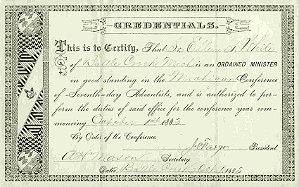 CREDENTIALS.
This is to Certify, That Mrs Ellen G. White
of Battle Creek Mich is an ORDAINED MINISTER
in good standing in the Michigan Conference
of Seventh-day Adventists, and is authorized to per-
form the duties of said office for the conference year com-
mencing October 1st 1885
By Order of the Conference.
President
Secretary
Date,